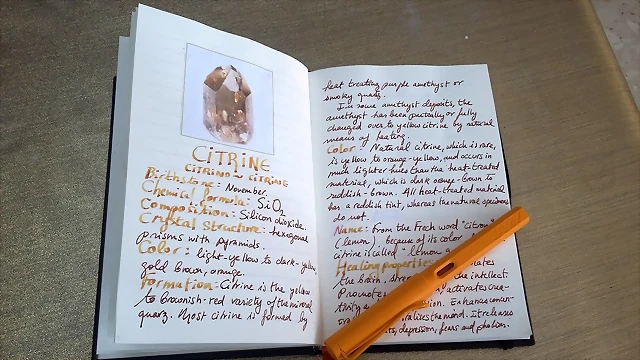 CITRINE
CITRINO ~ CITRINE
Birthstone: November.
Chemical formula: SiO2
Composition: Silicon dioxide.
Crystal structure: hexagonal
prisms with pyramids.
Color: light-yellow to dark-yellow,
gold brown, orange.
Formation: Citrine is the yellow
to brownish-red variety of the mineral
quarz. Most citrine is formed by
heat treating purple amethyst or
smoky quarz.
In some amethyst deposits, the
amethyst has been partially or fully
changed over to yellow citrine by natural
means of heating.
Color: Natural citrine, which is rare,
is yellow to orange-yellow, and occurs in
much lighter hues than the heat-treated
material, which is dark orange-brown to
reddish-brown. All heat-treated material
has a reddish tint, whereas the natural specimens
do not.
Name: from the Frech word "citron"
(lemon) because of its color
citrine is called "lemon
Healing properties
the brain, the intellect.
Promotes activates crea-
tivity Enhances
the mind. It releases
depression, fears and phobias.